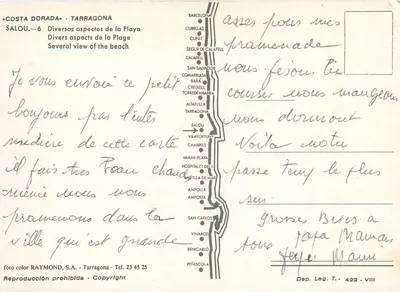 «COSTA DORADA» - TARRAGONA
SALOU.—6 Diversos aspectos de la Playa
Divers aspects de la Plage
Several view of the beach
Je vous envoie ce petit
bonjours par l'inter
mediere de cette carte
il fais très Beau chaud
même nous nous
promenons dans la
ville qui est grande
foto color RAYMOND, S.A. - Tarragona - Tel. 23 45 25
Reproducción prohibida - Copyright
BARCELONA
CUBELLAS
CUNIT
SEGUR DE CALAFELL
CALAFELL
SAN SALVADOR
COMARRUGA
BARÁ
CREIXELL
TORREDEMBARRA
ALTAFULLA
TARRAGONA
SALOU
VILAFORTUNY
CAMBRILS
MIAMI-PLAYA
HOSPITALET DE
AMPOLLA
AMPOSTA
SAN CARLOS
VINAROZ
BENICARLÓ
PEÑÍSCOLA
asses pour mes
promenade
nous fesons les
courses nous mangeons
nous dormont
Voila notre
passe temp le plus
sur
grosses Bises a
tous Papa Maman
Dep. Leg. T. - 422 - VIII